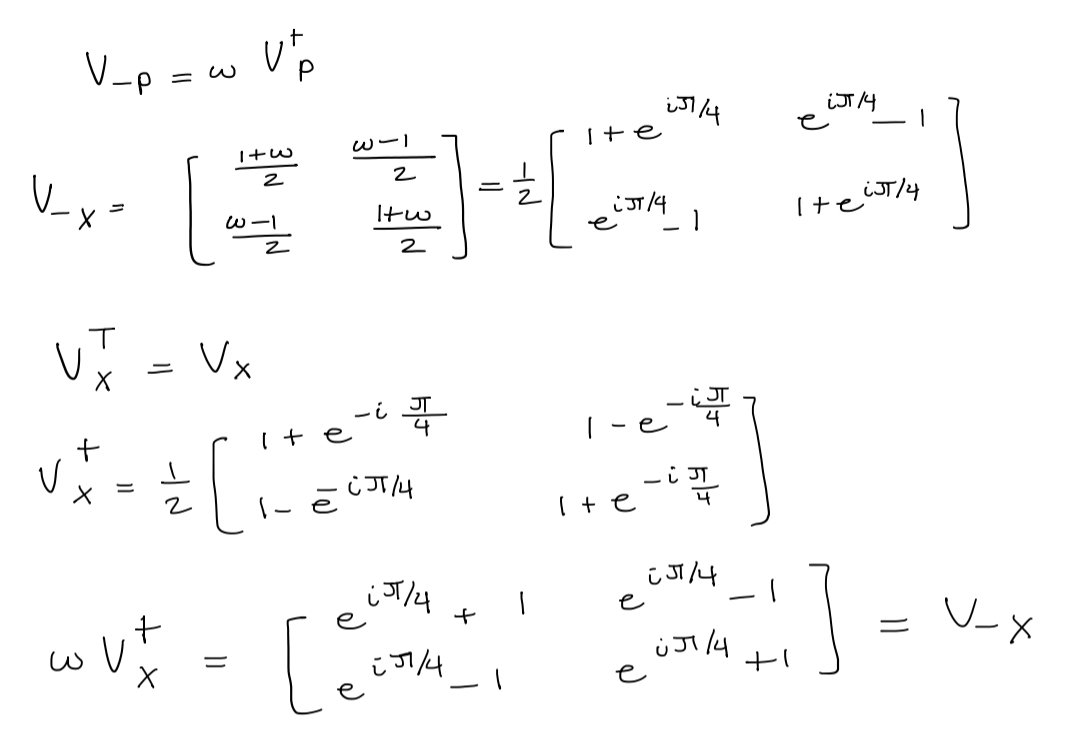 V_{-p} = ω V_p^†
V_{-x} = [ \frac{1+ω}{2} \frac{ω-1}{2} ; \frac{ω-1}{2} \frac{1+ω}{2} ] = \frac{1}{2} [ 1+e^{iπ/4} e^{iπ/4}-1 ; e^{iπ/4}-1 1+e^{iπ/4} ]
V_x^T = V_x
V_x^† = \frac{1}{2} [ 1+e^{-i\frac{π}{4}} 1-e^{-\frac{iπ}{4}} ; 1-e^{-iπ/4} 1+e^{-i\frac{π}{4}} ]
ω V_x^† = [ e^{iπ/4}+1 e^{iπ/4}-1 ; e^{iπ/4}-1 e^{iπ/4}+1 ] = V_{-x}